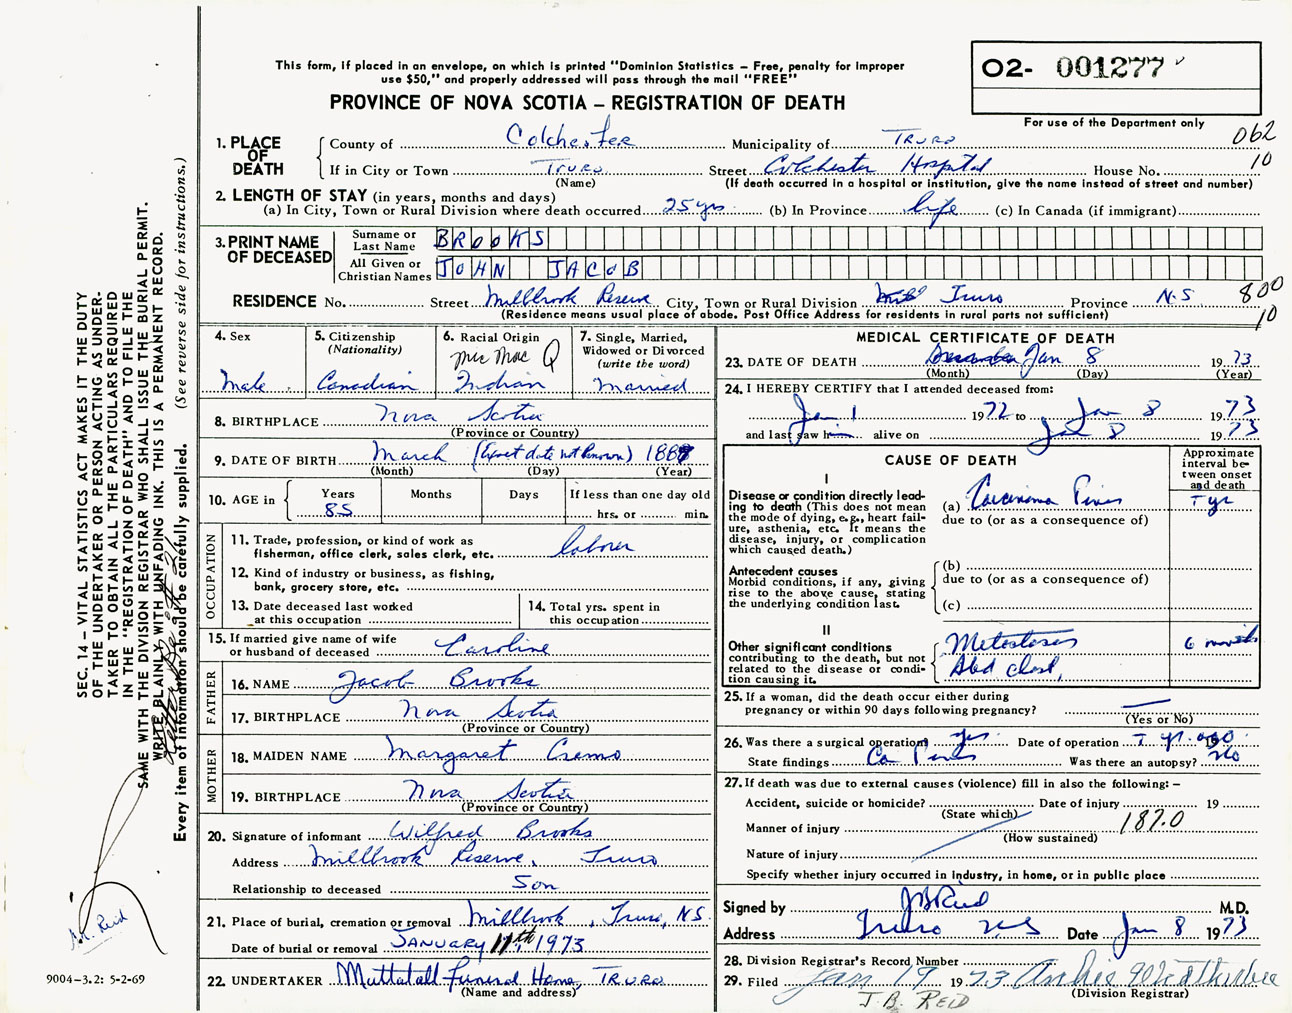 This form, if placed in an envelope, on which is printed "Dominion Statistics – Free, penalty for improper
use $50," and properly addressed will pass through the mail "FREE"
PROVINCE OF NOVA SCOTIA – REGISTRATION OF DEATH
O2- 001277
For use of the Department only
062
10
1. PLACE OF DEATH
County of Colchester Municipality of TRURO
If in City or Town TRURO Street Colchester Hospital House No.
(Name) (If death occurred in a hospital or institution, give the name instead of street and number)
2. LENGTH OF STAY (in years, months and days)
(a) In City, Town or Rural Division where death occurred 25 yrs. (b) In Province life (c) In Canada (if immigrant)
3. PRINT NAME OF DECEASED
Surname or Last Name BROOKS
All Given or Christian Names JOHN JACOB
RESIDENCE No. Street Millbrook Reserve City, Town or Rural Division Truro Province N.S
(Residence means usual place of abode. Post Office Address for residents in rural parts not sufficient)
800
10
4. Sex Male
5. Citizenship (Nationality) Canadian
6. Racial Origin Mic Mac Indian
7. Single, Married, Widowed or Divorced (write the word) Married
8. BIRTHPLACE Nova Scotia
(Province or Country)
9. DATE OF BIRTH March (Exact date not known) 1887
(Month) (Day) (Year)
10. AGE in Years 85 Months Days If less than one day old
hrs. or min.
OCCUPATION
11. Trade, profession, or kind of work as
fisherman, office clerk, sales clerk, etc. laborer
12. Kind of industry or business, as fishing,
bank, grocery store, etc.
13. Date deceased last worked
at this occupation
14. Total yrs. spent in
this occupation
15. If married give name of wife
or husband of deceased Caroline
FATHER
16. NAME Jacob Brooks
17. BIRTHPLACE Nova Scotia
(Province or Country)
MOTHER
18. MAIDEN NAME Margaret Cremo
19. BIRTHPLACE Nova Scotia
(Province or Country)
20. Signature of informant Wilfred Brooks
Address Millbrook Reserve, Truro
Relationship to deceased Son
21. Place of burial, cremation or removal Millbrook, Truro, N.S.
Date of burial or removal JANUARY 11th, 1973
22. UNDERTAKER Mattatall Funeral Home, TRURO
(Name and address)
MEDICAL CERTIFICATE OF DEATH
23. DATE OF DEATH Jan 8 1973
(Month) (Day) (Year)
24. I HEREBY CERTIFY that I attended deceased from:
Jan 1 1972 to Jan 8 1973
and last saw h alive on Jan 8 1973
CAUSE OF DEATH
Approximate interval between onset and death
I
Disease or condition directly leading
to death (This does not mean
the mode of dying, e.g., heart failure,
asthenia, etc. It means the
disease, injury, or complication
which caused death.)
(a) Carcinoma Penis 1 yr
due to (or as a consequence of)
Antecedent causes
Morbid conditions, if any, giving
rise to the above cause, stating
the underlying condition last.
(b)
due to (or as a consequence of)
(c)
II
Other significant conditions
contributing to the death, but not
related to the disease or condition
causing it.
Metastases 6 months
Abd chest,
25. If a woman, did the death occur either during
pregnancy or within 90 days following pregnancy?
(Yes or No)
26. Was there a surgical operation? yes. Date of operation 1 yr. ago.
State findings Ca Penis Was there an autopsy? No
27. If death was due to external causes (violence) fill in also the following: –
Accident, suicide or homicide? Date of injury 19
(State which)
Manner of injury 187.0
(How sustained)
Nature of injury
Specify whether injury occurred in industry, in home, or in public place
Signed by J B Reid M.D.
Address Truro NS Date Jan 8 1973
28. Division Registrar's Record Number
29. Filed Jan 19 1973 Archie Weatherbee
(Division Registrar)
J. B. REID
SEC. 14 – VITAL STATISTICS ACT MAKES IT THE DUTY
OF THE UNDERTAKER OR PERSON ACTING AS UNDER-
TAKER TO OBTAIN ALL THE PARTICULARS REQUIRED
IN THE "REGISTRATION OF DEATH" AND TO FILE THE
SAME WITH THE DIVISION REGISTRAR WHO SHALL ISSUE THE BURIAL PERMIT.
WRITE PLAINLY WITH UNFADING INK. THIS IS A PERMANENT RECORD.
Every item of information should be carefully supplied. (See reverse side for instructions.)
Reid
9004–3.2: 5-2-69